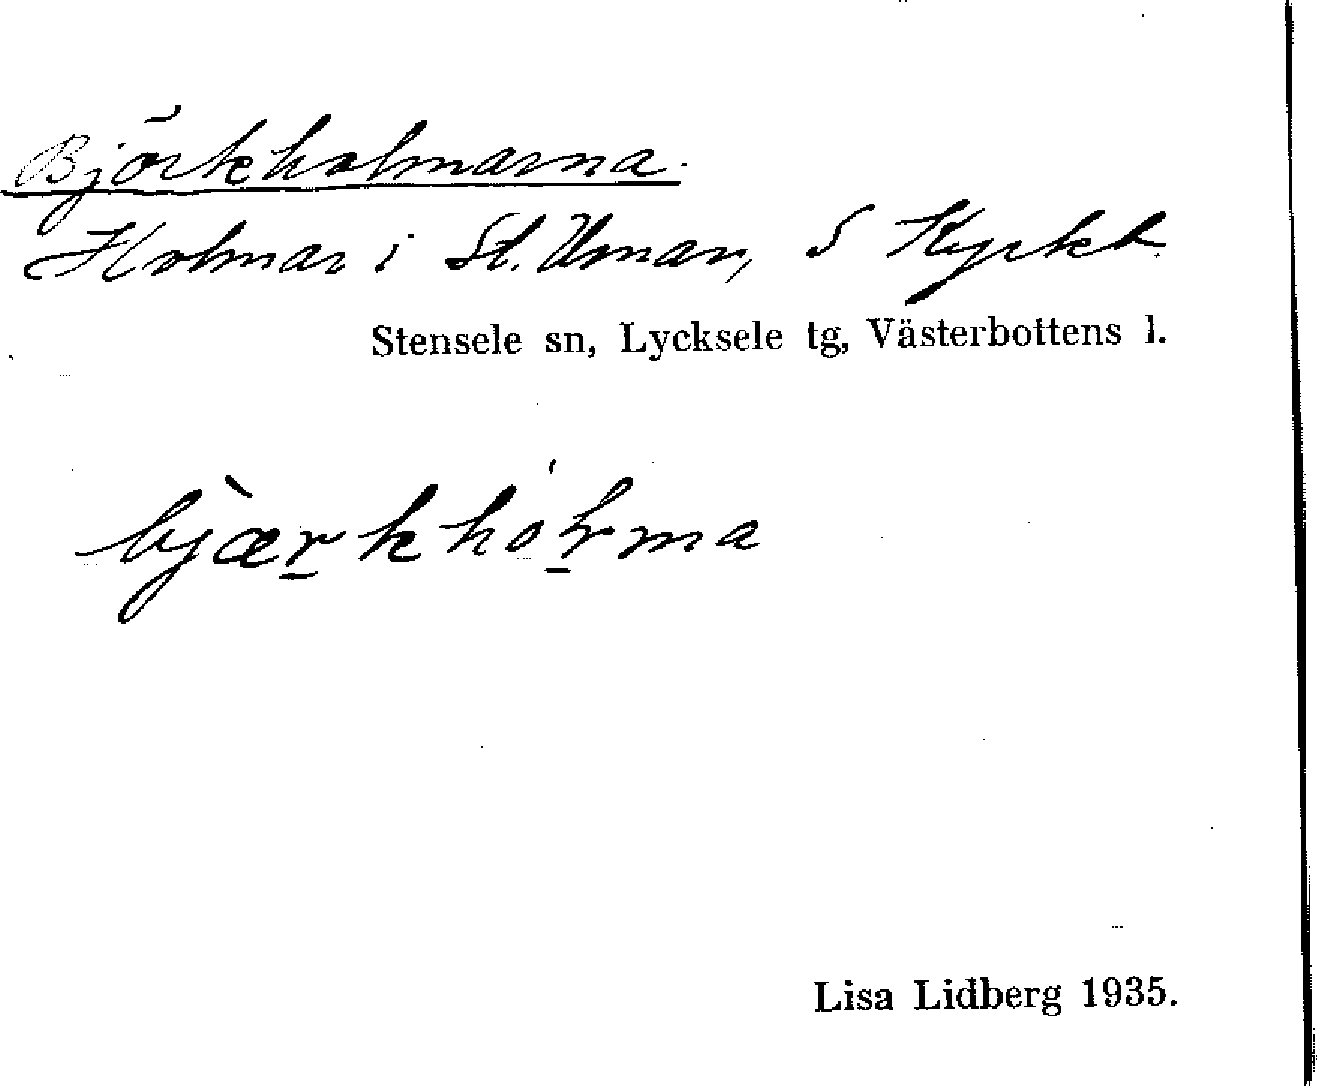 Björkholmarna.
Holmar i St. Uman, S Kyrkt.
Stensele sn, Lycksele tg, Västerbottens l.
bjæ̀r̲khól̲ma
Lisa Lidberg 1935.